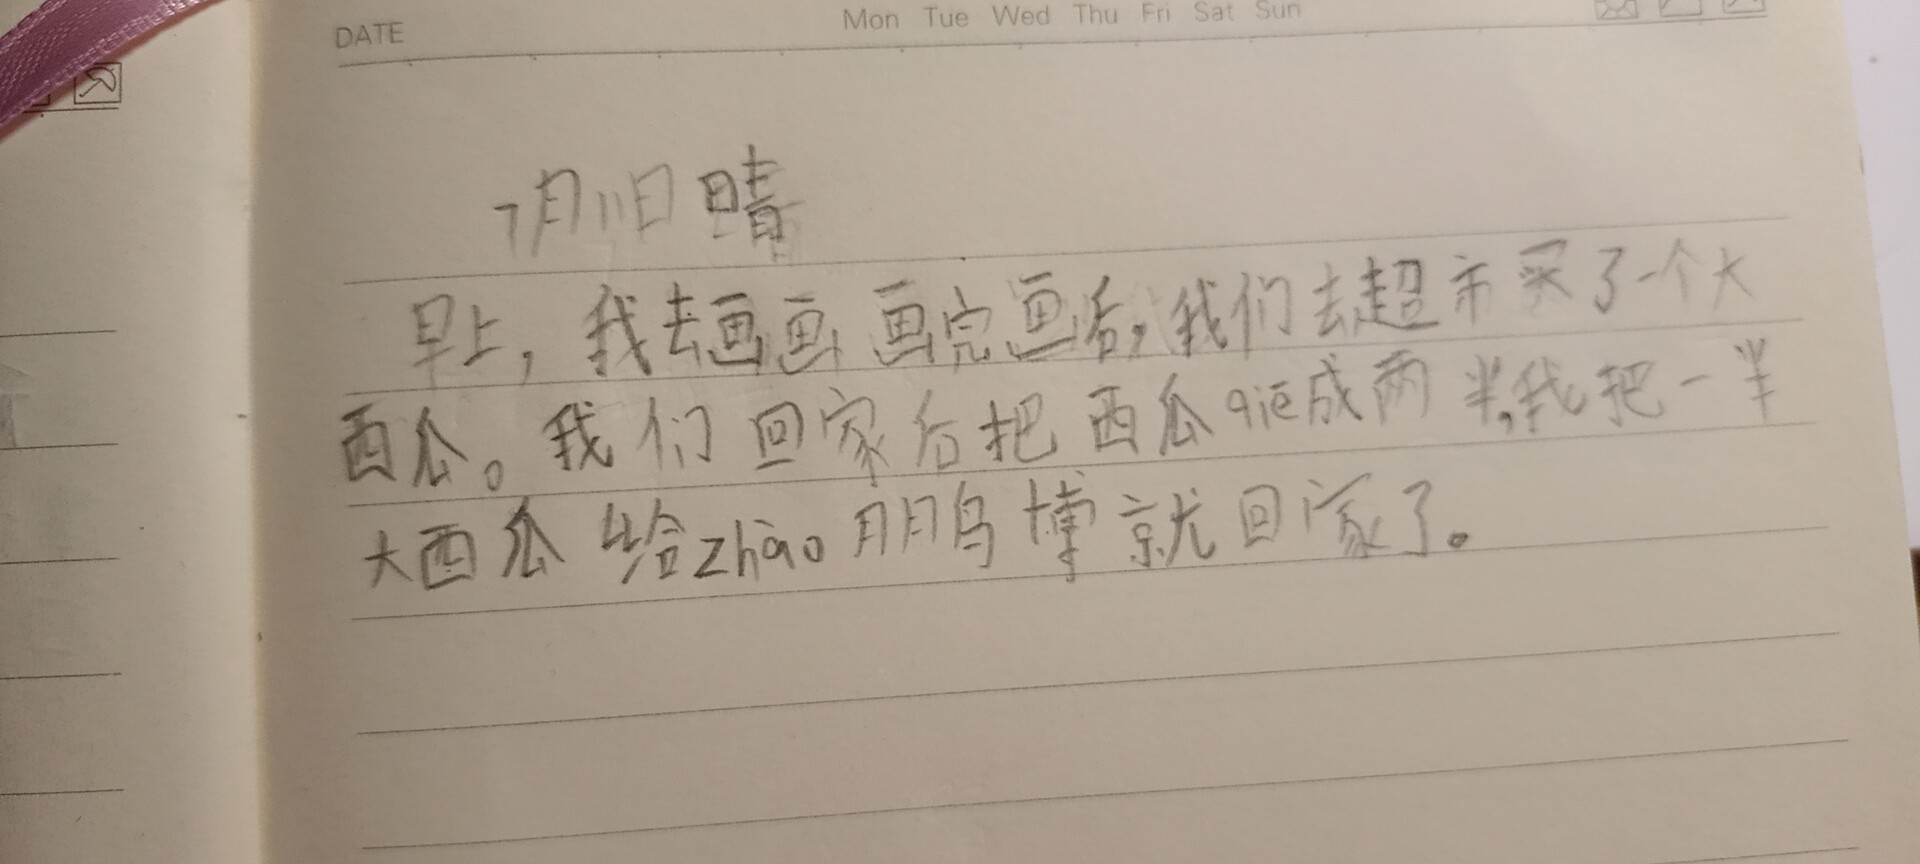 DATE
Mon Tue Wed Thu Fri Sat Sun
7月11日 晴
早上，我去画画 画完画后，我们去超市买了一个大
西瓜。我们回家后把西瓜qiē成两半，我把一半
大西瓜给zhào朋鸟博就回家了。